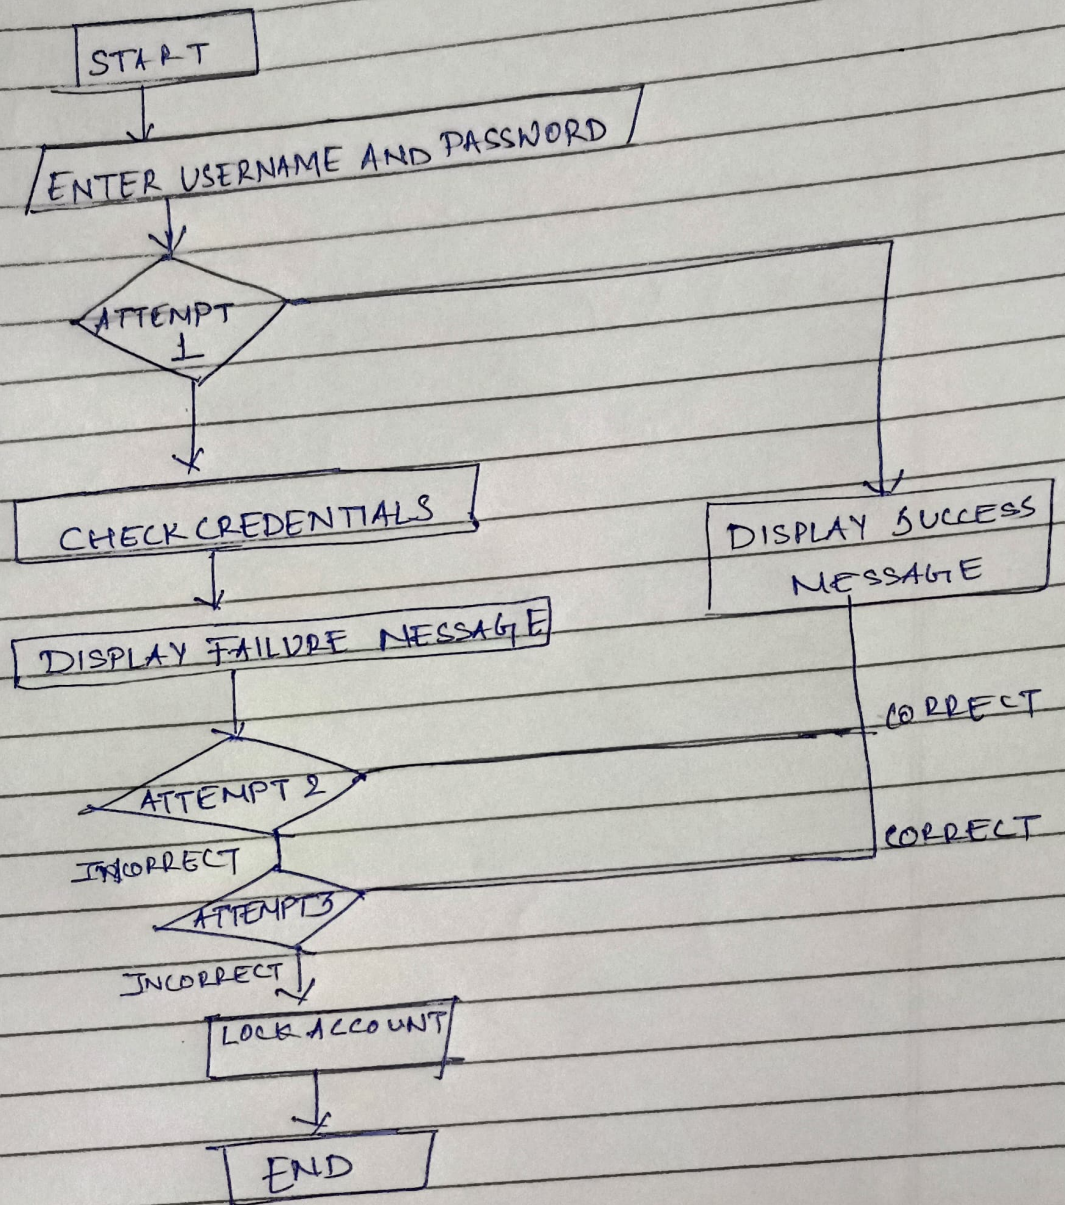 START
ENTER USERNAME AND PASSWORD
ATTEMPT
1
CHECK CREDENTIALS
DISPLAY SUCCESS
MESSAGE
DISPLAY FAILURE MESSAGE
CORRECT
ATTEMPT 2
CORRECT
INCORRECT
ATTEMPT 3
INCORRECT
LOCK ACCOUNT
END